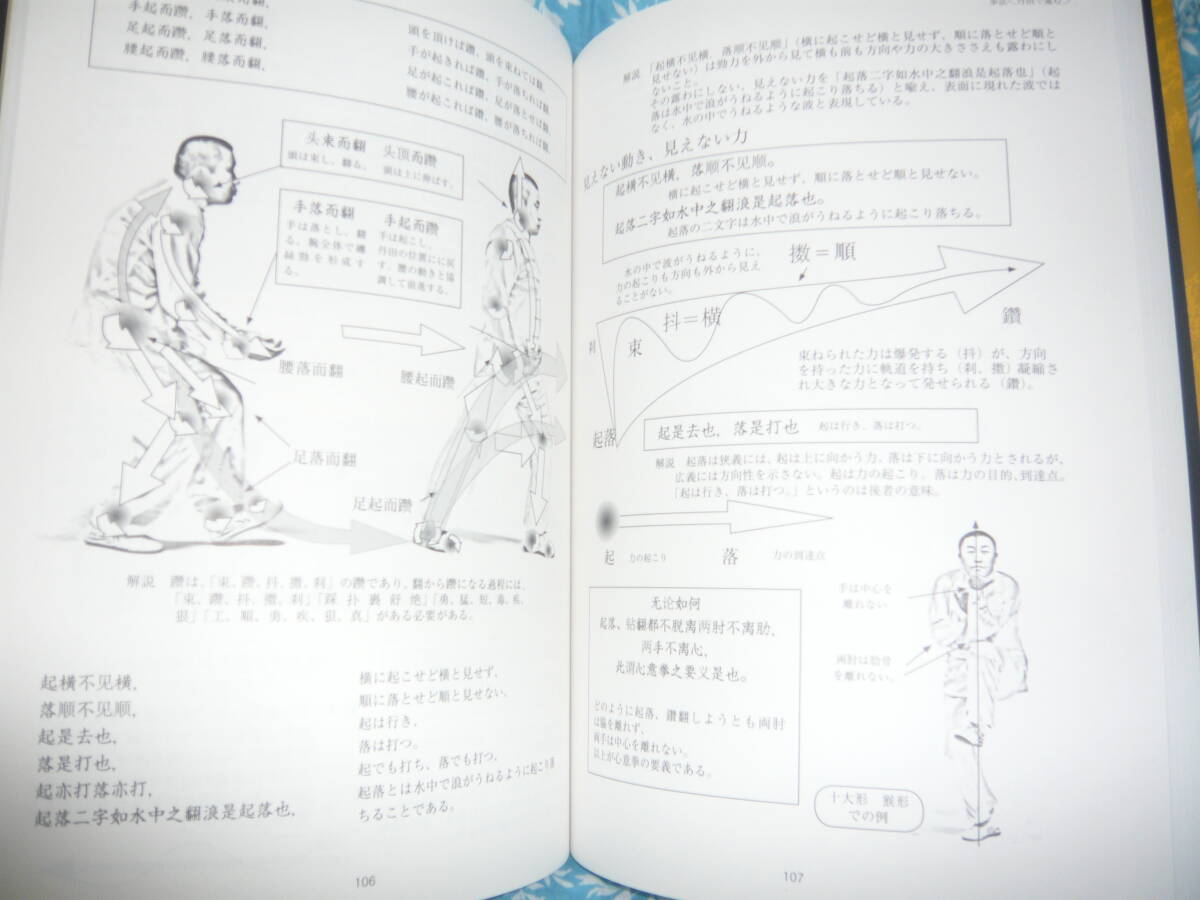 手起而鑽，手落而翻，
足起而鑽，足落而翻，
腰起而鑽，腰落而翻，
頭を頂けば鑽，頭を束ねては翻，
手が起これば鑽，手が落ちれば翻，
足が起これば鑽，足が落とせば翻，
腰が起これば鑽，腰が落ちれば翻，
头束而翻
頭は束し，翻る。
头顶而鑽
頭は上に伸ばす。
手落而翻
手は落とし，翻
る。腕全体で纏
絲勁を形成す
る。
手起而鑽
手は起こし，
丹田の位置にに戻
す。腰の動きと協
調して前進する。
腰落而翻
腰起而鑽
足落而翻
足起而鑽
解説　鑽は，「束，鑽，抖，撒，刹」の鑽であり，翻から鑽になる過程には，
「束，鑽，抖，撒，刹」「踩 扑 裹 舒 绝」「勇，猛，短，毒，疾，
狠」「工，順，勇，疾，狠，真」がある必要がある。
起横不见横，
落顺不见顺，
起是去也，
落是打也，
起亦打落亦打，
起落二字如水中之翻浪是起落也，
横に起こせど横と見せず，
順に落とせど順と見せない。
起は行き，
落は打つ。
起でも打ち，落でも打つ，
起落とは水中で浪がうねるように起こり落
ちることである。
106
解説　「起横不见横，落顺不见顺」（横に起こせど横と見せず，順に落とせど順と
見せない）は勁力を外から見て横も前も方向や力の大きささえも露わにし
ないこと。
その露わにしない，見えない力を「起落二字如水中之翻浪是起落也」（起
落は水中で浪がうねるように起こり落ちる）と喩え，表面に現れた波では
なく，水の中でうねるような波と表現している。
見えない動き、見えない力
起横不见横，落顺不见顺。
横に起こせど横と見せず，順に落とせど順と見せない。
起落二字如水中之翻浪是起落也。
起落の二文字は水中で浪がうねるように起こり落ちる。
水の中で波がうねるように，
力の起こりも方向も外から見え
ることがない。
撒＝順
抖＝横
束
鑽
起落
束ねられた力は爆発する（抖）が，方向
を持った力に軌道を持ち（刹，撒）凝縮さ
れ大きな力となって発せられる（鑽）。
起是去也，落是打也　起は行き，落は打つ。
解説　起落は狭義には，起は上に向かう力，落は下に向かう力とされるが，
広義には方向性を示さない。起は力の起こり，落は力の目的，到達点。
「起は行き，落は打つ。」というのは後者の意味。
起　力の起こり　落　力の到達点
无论如何
起落、钻翻都不脱离两肘不离肋，
两手不离心，
此谓心意拳之要义是也。
どのように起落，鑽翻しようとも両肘
は脇を離れず，
両手は中心を離れない。
以上が心意拳の要義である。
手は中心を
離れない
両肘は肋骨
を離れない。
十大形　猴形
での例
107